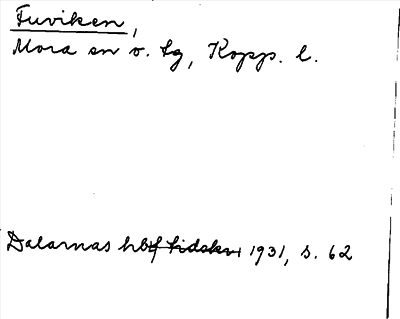 Fuviken,
Mora sn o. tg, Kopp. l.
Dalarnas hbf tidskr 1931, s. 62